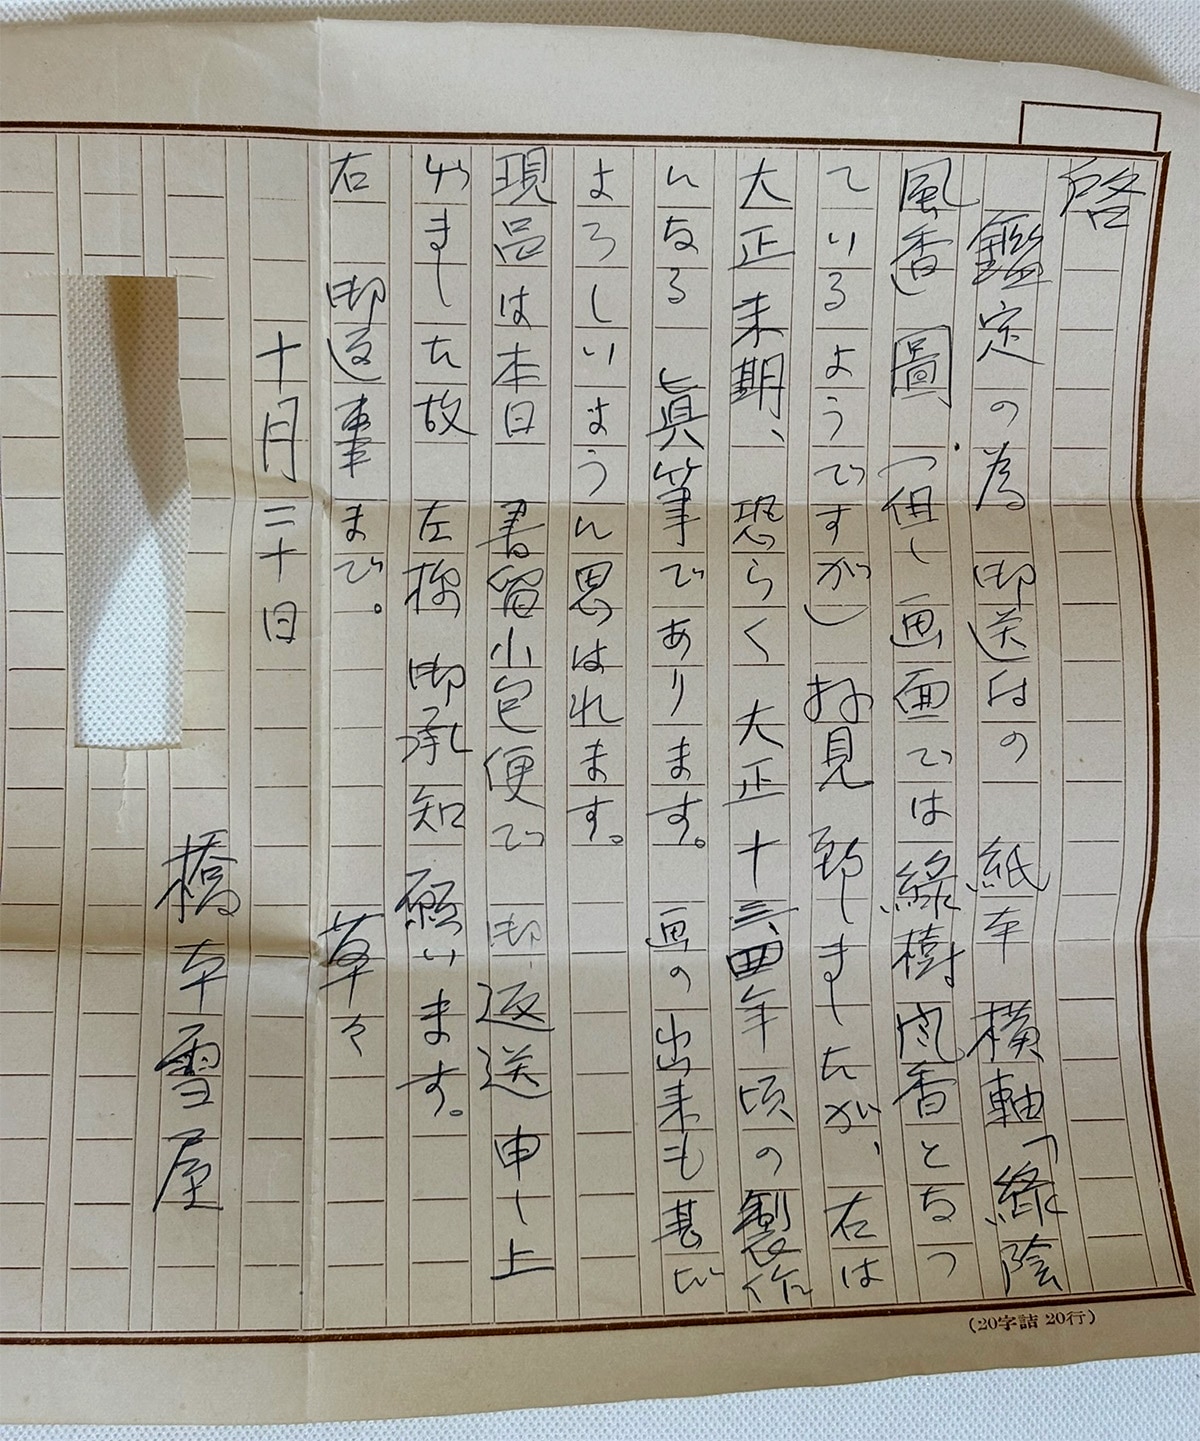 啓
鑑定の為 御送付の 紙本 横軸「緑陰
風香」圖 (但し画面では緑樹風香となつ
ているようですが) 拝見致しましたが、右は
大正末期、恐らく大正十三、四年頃の製作
になる 眞筆であります。 画の出来も甚だ
よろしいように思はれます。
現品は本日 書留小包便で 御返送申し上
げました故 左様 御承知 願います。
右 御返事まで。 草々
十月二十日
橋本雪屋
(20字詰 20行)